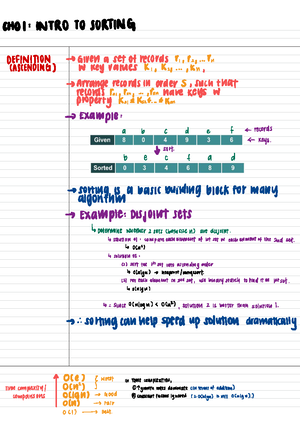 CH01: INTRO TO SORTING
DEFINITION
(ASCENDING)
→ Given a set of records r₁, r₂, ... rₙ
w key values k₁, k₂, ..., kₙ,
→ Arrange records in order S, such that
records rₛ₁, rₛ₂, ..., rₛₙ have keys w
property
→ Example:
a b c d e f ← records
Given 8 0 4 9 3 6 ← keys
↓ sort
b e c f a d
Sorted 0 3 4 6 8 9
→ sorting is a basic building block for many
algorithm
→ Example: Disjoint sets
↳ determine whether 2 sets are disjoint.
↳ solution 1: compare each element of 1st set w each element of the 2nd set.
↳ O(n²)
↳ solution 2:
(1) sort the 1st set into ascending order
↳ O(n lg n) → heapsort/mergesort
(2) for each element in 2nd set, use binary search to find it in 1st set
↳ O(n lg n)
∴ since O(n lg n) < O(n²), solution 2 is better than solution 1.
→ ∴ sorting can help speed up solution dramatically
time complexity/
comparisons
O(eⁿ)
O(n²) worst
O(n lg n) → good
O(n) → rare
O(1) → best
in time complexity,
① dominate
② constant factors ignored